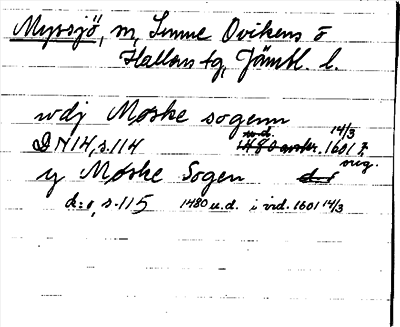 Myssjö, m, Sunne Ovikens o
Hallens tg, Jämtl. l.
wdj Møske sogenn
DN14, s.114 u.d. 14/3 1601
y Møske Sogen
d:o, s.115 1480 u.d. i vid. 1601 14/3